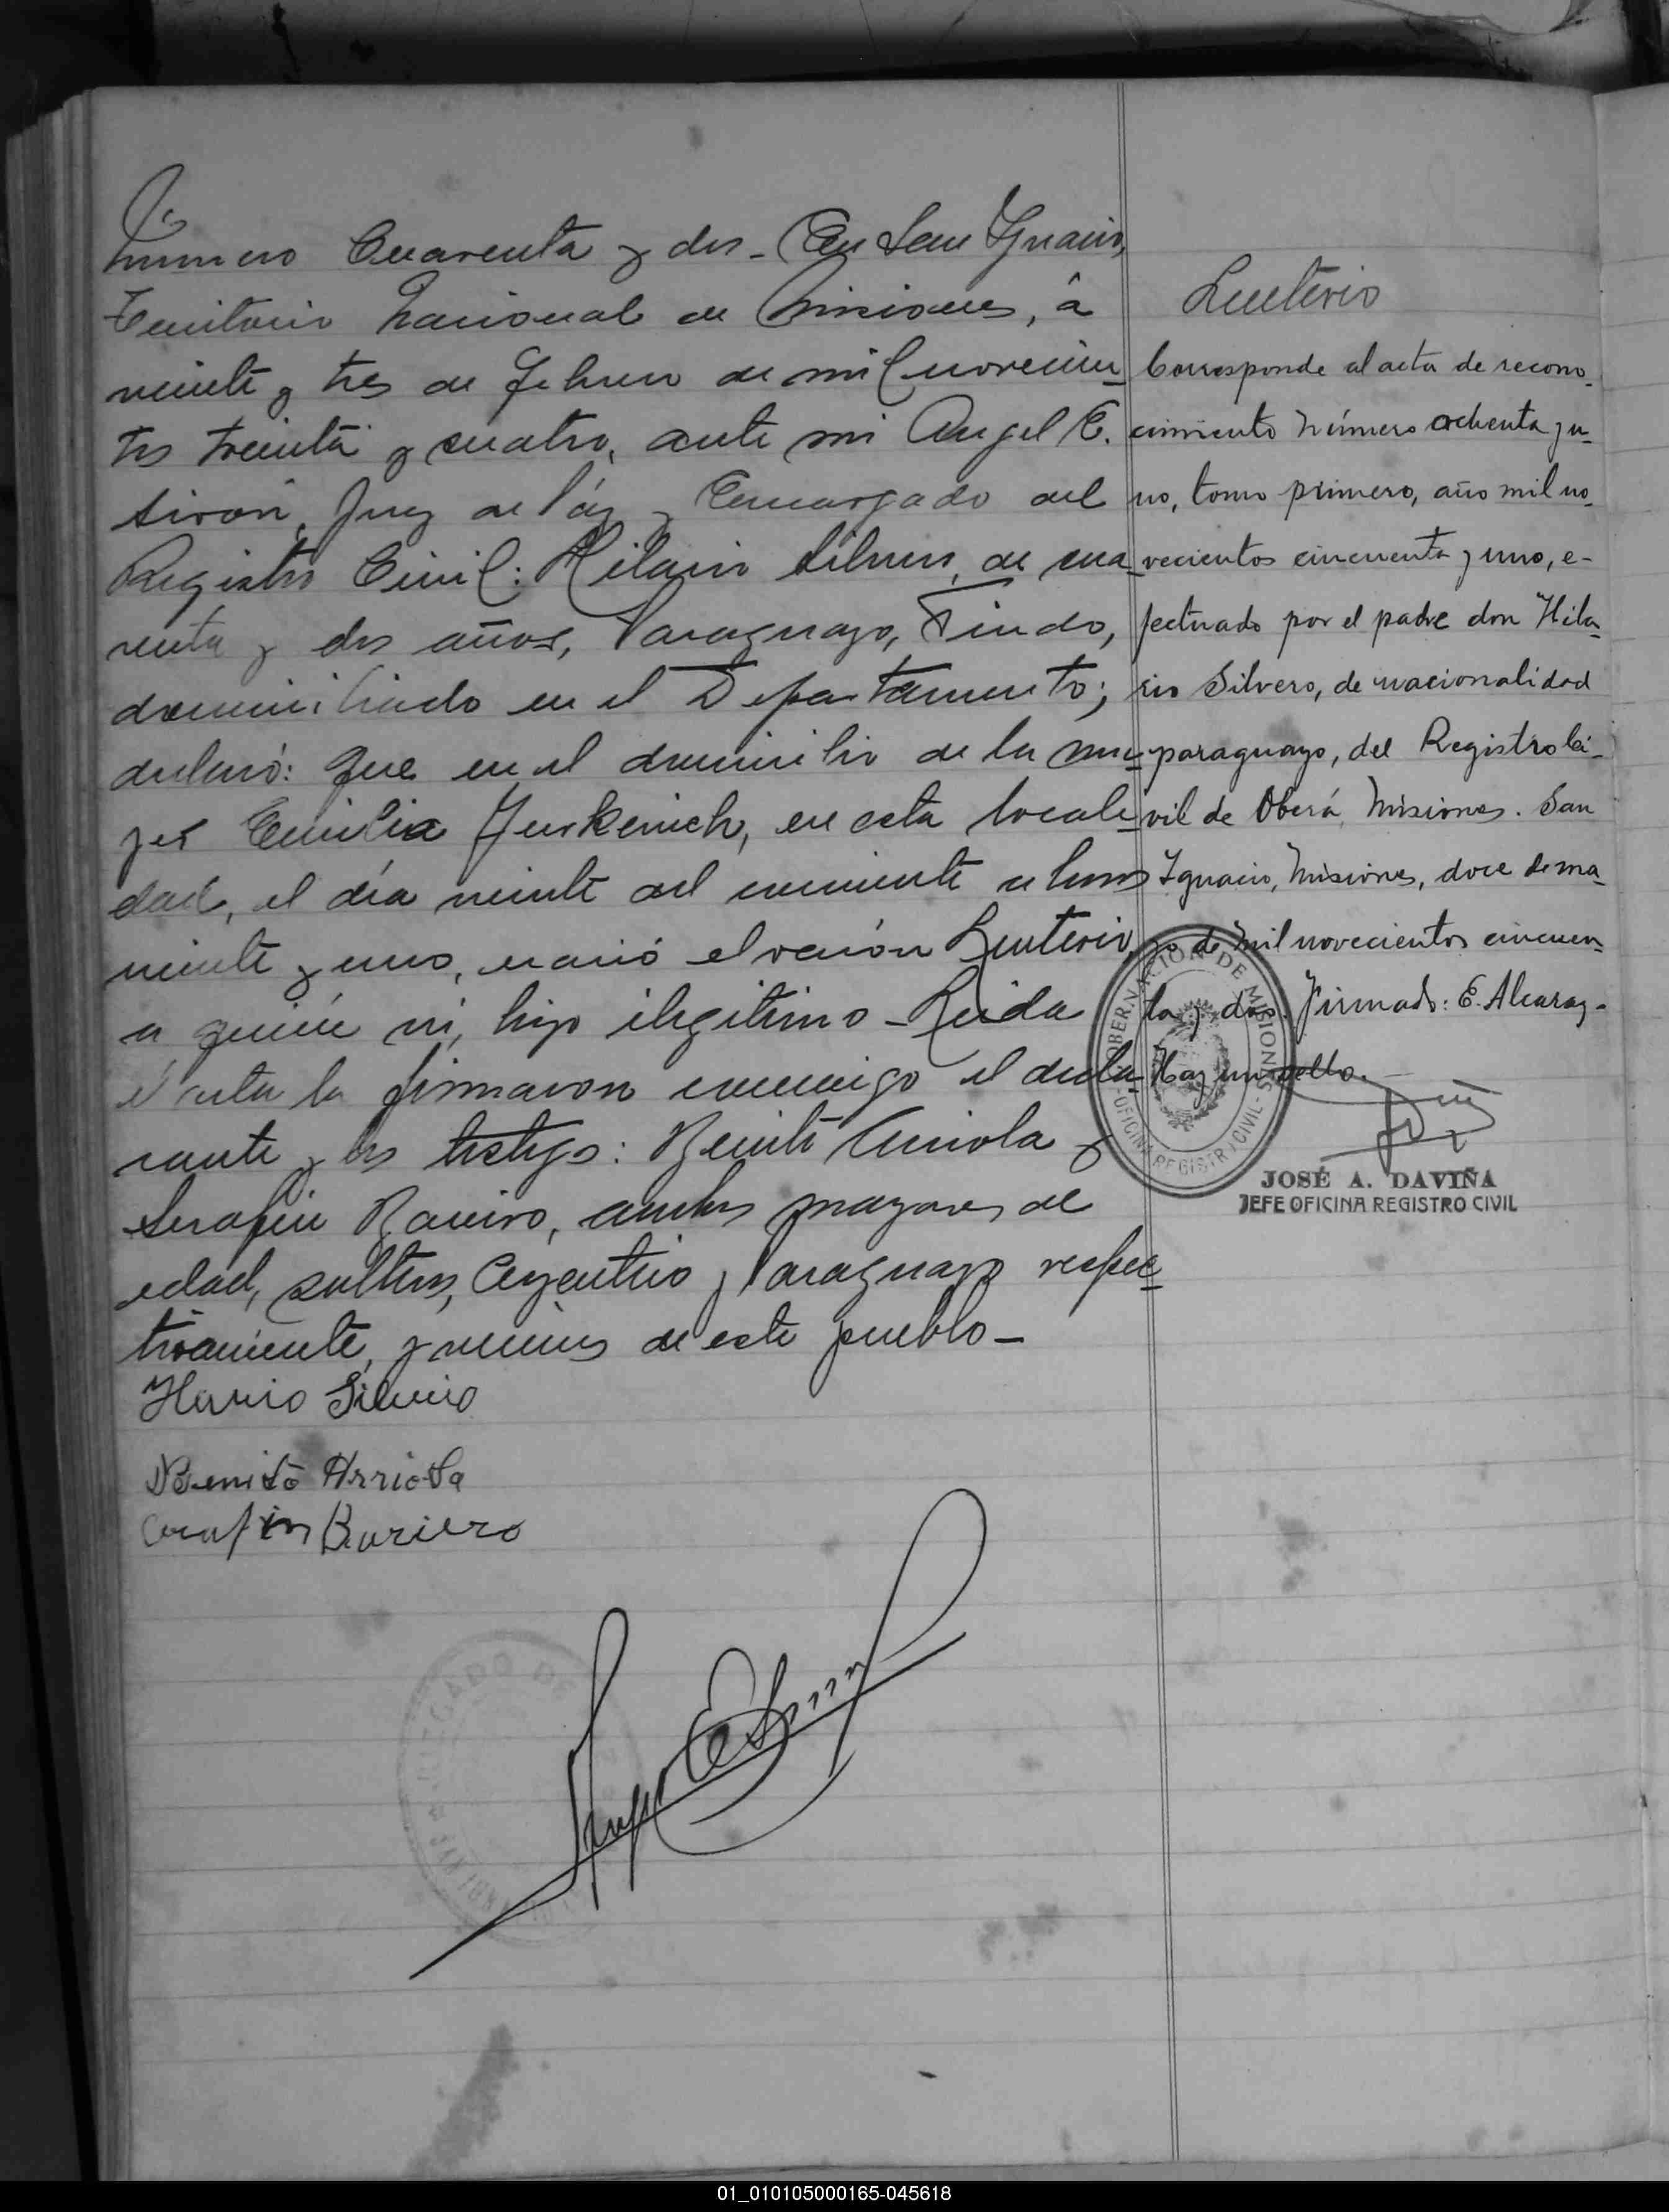 Número Cuarenta y dos - En San Ignacio,
Territorio Nacional de Misiones, á
veinte y tres de Febrero de mil novecien-
tos treinta y cuatro, ante mi Angel E.
Sirón, Juez de Páz y Encargado del
Registro Civil: Hilario Silvero, de cua-
renta y dos años, Paraguayo, Viudo,
domiciliado en el Departamento;
declaró: Que en el domicilio de la mu-
jer Emilia Jurkevich, en esta locali-
dad, el día veinte del corriente a horas
veinte y uno, nació el varón Leuterio,
a quién vi, hijo ilegitimo - Leida
el acta la firmaron conmigo el decla-
rante y los testigos: Benito Arriola y
Serafin Bareiro, ambos mayores de
edad, solteros, Argentino y Paraguayo respec-
tivamente, y vecinos de este pueblo -
Ilario Silveiro
Benito Arriola
Bariero
Leuterio
Corresponde al acta de recono-
cimiento número ochenta y u-
no, tomo primero, año mil no-
vecientos cincuenta y uno, e-
fectuado por el padre don Hila-
rio Silvero, de nacionalidad
paraguayo, del Registro Ci-
vil de Oberá, Misiones. San
Ignacio, Misiones, doce de ma-
yo de mil novecientos cincuen-
ta y dos. Firmado: E. Alcaraz.
Hay un sello.
GOBERNACION DE MISIONES
OFICINA REGISTRO CIVIL
JOSÉ A. DAVIÑA
JEFE OFICINA REGISTRO CIVIL
JUZGADO DE
01_010105000165-045618